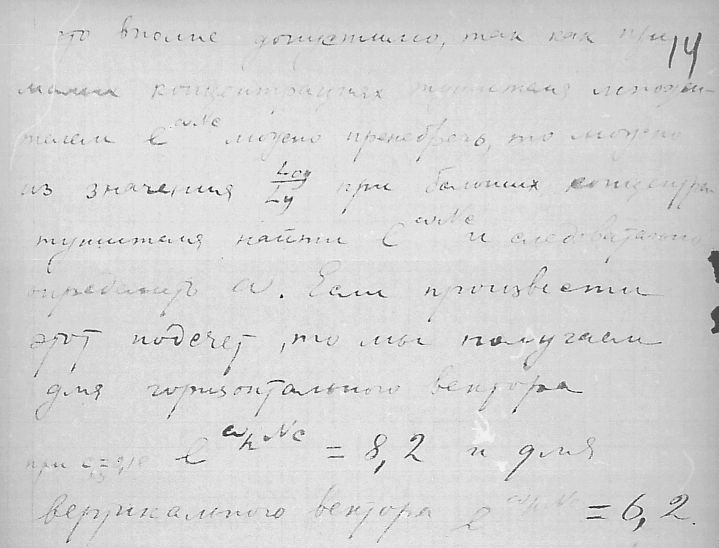 14
это вполне допустимо, так как при
малых концентрациях тушителя множи-
телем e^{ωNc} можно пренебречь, то можно
из значения L_{oy}/L_y при больших концентра
тушителя найти e^{ωNc} и следовательно
определить ω. Если произвести
этот подсчет, то мы получаем
для горизонтального вектора
при e^{ω_hNc} = 8,2 и для
вертикального вектора = 6,2.